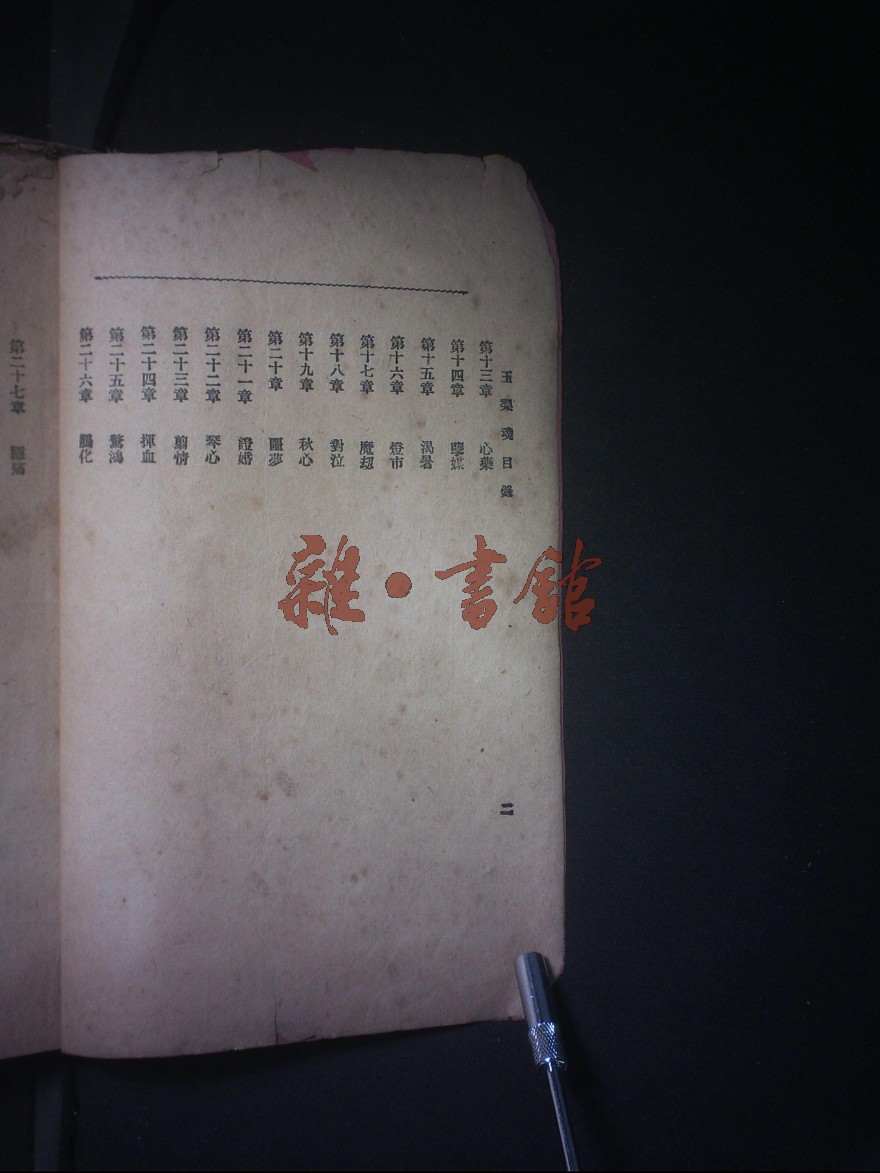 玉梨魂目錄
第十三章　心藥
第十四章　孽媒
第十五章　渴暑
第十六章　燈市
第十七章　魔刼
第十八章　對泣
第十九章　秋心
第二十章　噩夢
第二十一章　證婚
第二十二章　琴心
第二十三章　剪情
第二十四章　揮血
第二十五章　驚鴻
第二十六章　鵑化
二
第二十七章
雜·書館